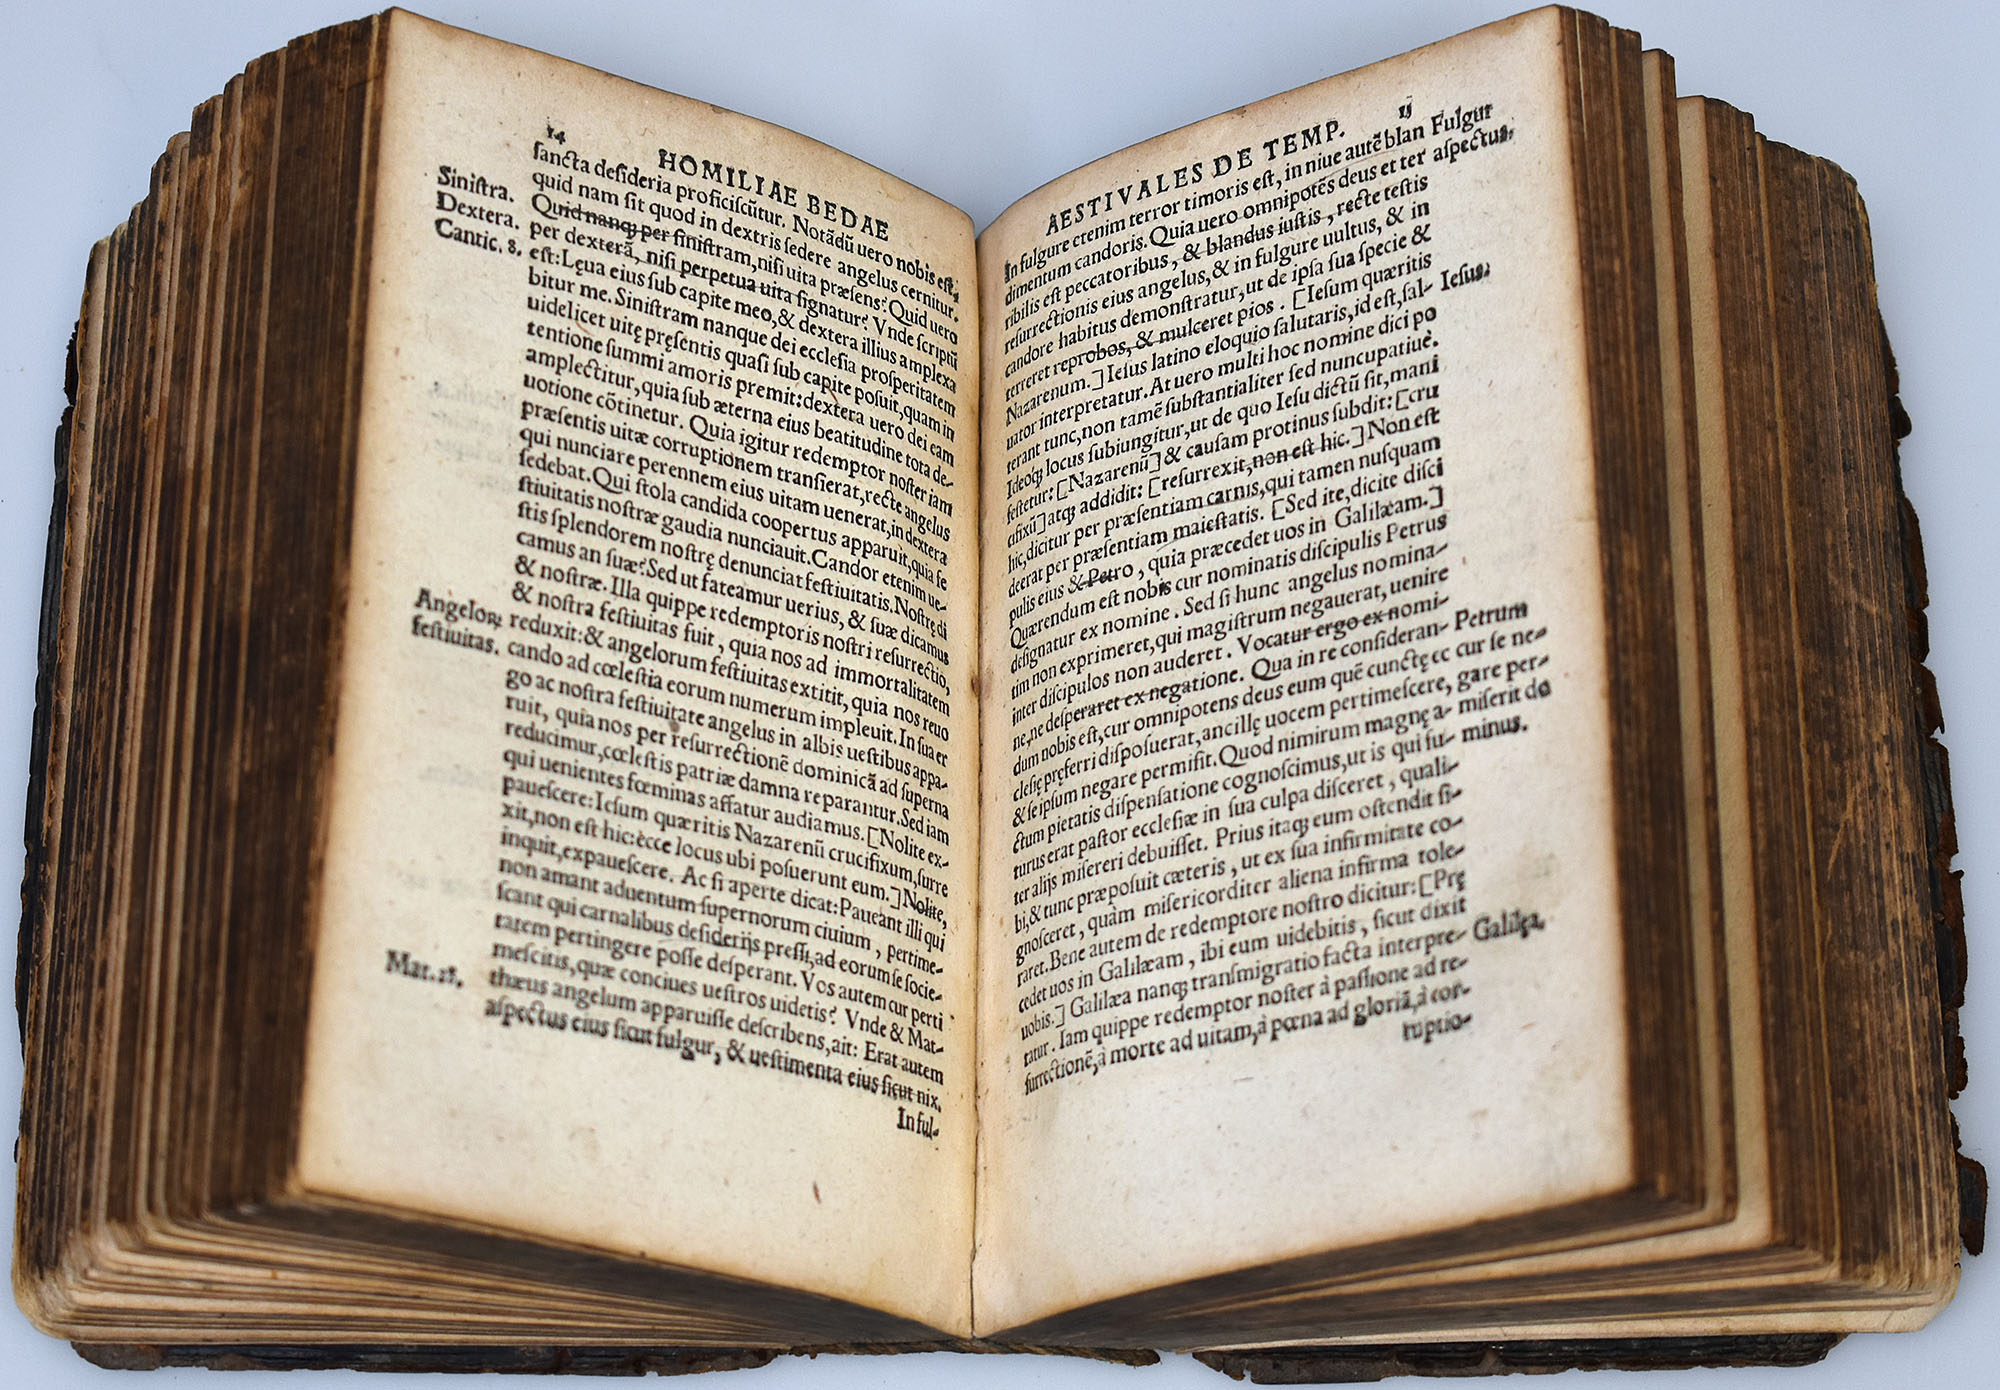 14
HOMILIAE BEDAE
ſancta deſideria proficiſcūtur. Notādū uero nobis eſt,
Siniſtra. quid nam ſit quod in dextris ſedere angelus cernitur.
Dextera. Quid nanq; per ſiniſtram, niſi uita præſens? Quid uero
Cantic. 8. per dexterā, niſi perpetua uita ſignatur? Vnde ſcriptū
eſt: Lęua eius ſub capite meo, & dextera illius amplexa
bitur me. Siniſtram nanque dei eccleſia proſperitatem
uidelicet uitę pręſentis quaſi ſub capite poſuit, quam in
tentione ſummi amoris premit: dextera uero dei eam
amplectitur, quia ſub æterna eius beatitudine tota de-
uotione cōtinetur. Quia igitur redemptor noſter iam
præſentis uitæ corruptionem tranſierat, recte angelus
qui nunciare perennem eius uitam uenerat, in dextera
ſedebat. Qui ſtola candida coopertus apparuit, quia fe
ſtiuitatis noſtræ gaudia nunciauit. Candor etenim ue-
ſtis ſplendorem noſtrę denunciat feſtiuitatis. Noſtrę di
camus an ſuæ? Sed ut fateamur uerius, & ſuæ dicamus
& noſtræ. Illa quippe redemptoris noſtri reſurrectio,
& noſtra feſtiuitas fuit, quia nos ad immortalitatem
Angeloꝝ reduxit: & angelorum feſtiuitas extitit, quia nos reuo
feſtiuitas. cando ad cœleſtia eorum numerum impleuit. In ſua er
go ac noſtra feſtiuitate angelus in albis ueſtibus appa-
ruit, quia nos per reſurrectionē dominicā ad ſuperna
reducimur, cœleſtis patriæ damna reparantur. Sed iam
qui uenientes fœminas affatur audiamus. [Nolite ex-
paueſcere: Ieſum quæritis Nazarenū crucifixum, ſurre
xit, non eſt hic: ecce locus ubi poſuerunt eum.] Nolite,
inquit, expaueſcere. Ac ſi aperte dicat: Paueant illi qui
non amant aduentum ſupernorum ciuium, pertime-
ſcant qui carnalibus deſiderijs preſſi, ad eorum ſe ſocie-
tatem pertingere poſſe deſperant. Vos autem cur perti
meſcitis, quæ conciues ueſtros uidetis? Vnde & Mat-
Mat. 28. thæus angelum apparuiſſe deſcribens, ait: Erat autem
aſpectus eius ſicut fulgur, & ueſtimenta eius ſicut nix.
In ful-
AESTIVALES DE TEMP. 15
In fulgure etenim terror timoris eſt, in niue autē blan Fulgur
dimentum candoris. Quia uero omnipotēs deus et ter aſpectus.
ribilis eſt peccatoribus, & blandus iuſtis, recte teſtis
reſurrectionis eius angelus, & in fulgure uultus, & in
candore habitus demonſtratur, ut de ipſa ſua ſpecie &
terreret reprobos, & mulceret pios. [Ieſum quæritis
Nazarenum.] Ieſus latino eloquio ſalutaris, id eſt, ſal- Ieſus.
uator interpretatur. At uero multi hoc nomine dici po
terant tunc, non tamē ſubſtantialiter ſed nuncupatiuè.
Ideoq; locus ſubiungitur, ut de quo Ieſu dictū ſit, mani
feſtetur: [Nazarenū] & cauſam protinus ſubdit: [cru
cifixū] atq; addidit: [reſurrexit, non eſt hic.] Non eſt
hic, dicitur per præſentiam carnis, qui tamen nuſquam
deerat per præſentiam maieſtatis. [Sed ite, dicite diſci
pulis eius & Petro, quia præcedet uos in Galilæam.]
Quærendum eſt nobis cur nominatis diſcipulis Petrus
deſignatur ex nomine. Sed ſi hunc angelus nomina-
tim non exprimeret, qui magiſtrum negauerat, uenire
inter diſcipulos non auderet. Vocatur ergo ex nomi-
ne, ne deſperaret ex negatione. Qua in re conſideran- Petrum
dum nobis eſt, cur omnipotens deus eum quē cunctę ec cur ſe ne-
cleſię pręferri diſpoſuerat, ancillę uocem pertimeſcere, gare per-
& ſe ipſum negare permiſit. Quod nimirum magnę a- miſerit do
ctum pietatis diſpenſatione cognoſcimus, ut is qui fu- minus.
turus erat paſtor eccleſiæ in ſua culpa diſceret, quali-
ter alijs miſereri debuiſſet. Prius itaq; eum oſtendit ſi-
bi, & tunc præpoſuit cæteris, ut ex ſua infirmitate co-
gnoſceret, quàm miſericorditer aliena infirma tole-
raret. Bene autem de redemptore noſtro dicitur: [Prę
cedet uos in Galilæam, ibi eum uidebitis, ſicut dixit
uobis.] Galilæa nanq; tranſmigratio facta interpre- Galilęa.
tatur. Iam quippe redemptor noſter à paſſione ad re-
ſurrectionē, à morte ad uitam, à pœna ad gloriā, à cor-
ruptio-